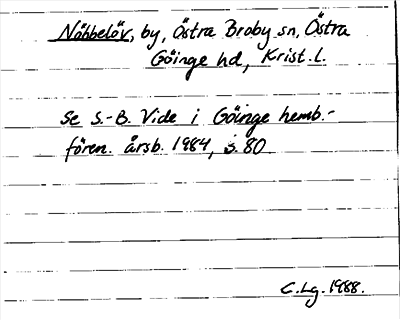 Nöbbelöv, by, Östra Broby sn, Östra
Göinge hd, Krist. l.
Se S.-B. Vide i Göinge hemb.-
fören. årsb. 1984, s. 80
C. Lg. 1988.